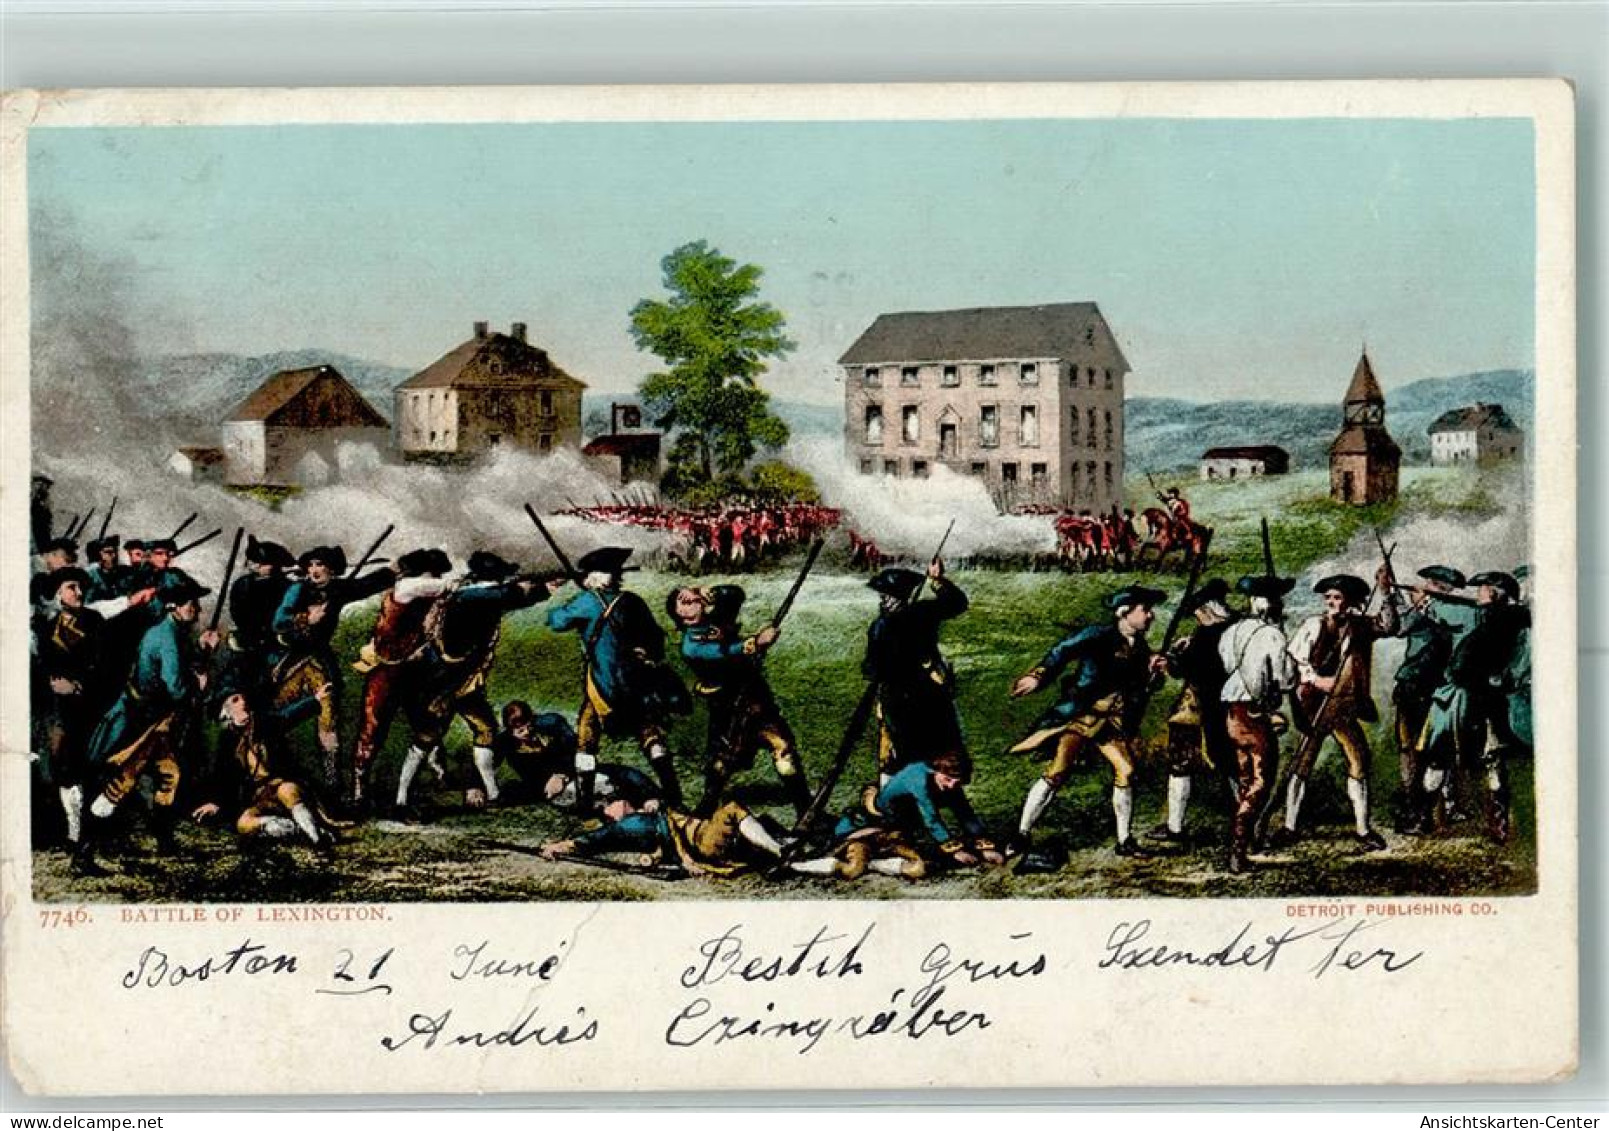 7746. BATTLE OF LEXINGTON.
DETROIT PUBLISHING CO.
Boston 21 Juni Bestih grüs Szendet ter
Andrés Czingráber
Ansichtskarten-Center